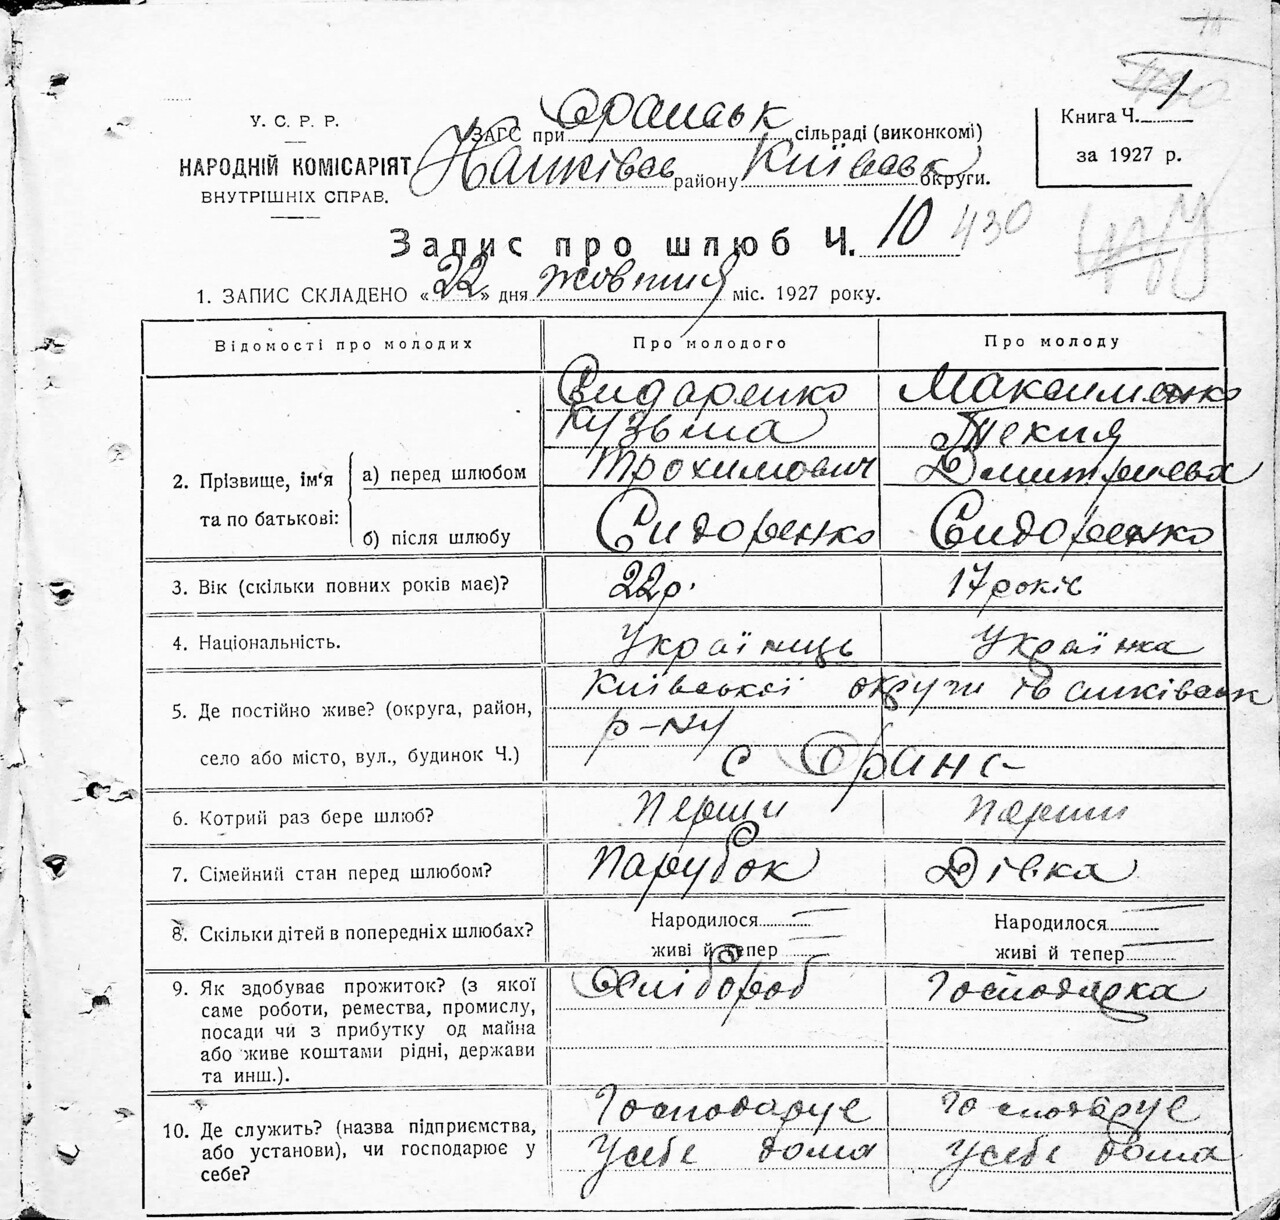 У. С. Р. Р.
НАРОДНІЙ КОМІСАРІЯТ
ВНУТРІШНІХ СПРАВ.
ЗАГС при Оранськ сільраді (виконкомі)
району Київськ округи.
Книга Ч. 1
за 1927 р.
Запис про шлюб Ч. 10 430
1. ЗАПИС СКЛАДЕНО «22» дня жовтня міс. 1927 року.
Відомості про молодих Про молодого Про молоду
2. Прізвище, ім'я та по батькові:
а) перед шлюбом
Сидаренко Максименко
Кузьма Текия
Трохимович Дмитриева
б) після шлюбу Сидоренко Сидоренко
3. Вік (скільки повних років має)? 22 р. 17 років
4. Національність. Українць Українка
5. Де постійно живе? (округа, район,
село або місто, вул., будинок Ч.)
Київської округи
р-ну
с Оране
6. Котрий раз бере шлюб? Перши Перши
7. Сімейний стан перед шлюбом? Парубок Дівка
8. Скільки дітей в попередніх шлюбах? Народилося Народилося
живі й тепер живі й тепер
9. Як здобуває прожиток? (з якої
саме роботи, ремества, промислу,
посади чи з прибутку од майна
або живе коштами рідні, держави
та инш.).
Хлібороб Господарка
10. Де служить? (назва підприємства,
або установи), чи господарює у
себе?
Господарує Господарує
У себе дома У себе дома